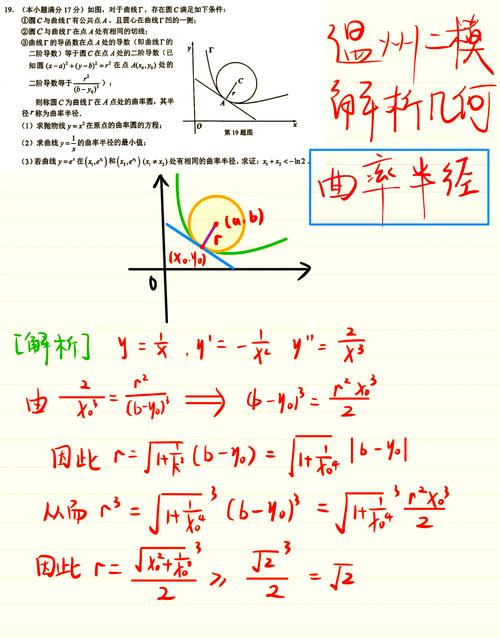 19. （本小题满分17分）如图，对于曲线Γ，存在圆C满足如下条件：
①圆C与曲线Γ有公共点A，且圆心在曲线Γ凹的一侧；
②圆C与曲线Γ在点A处有相同的切线；
③曲线Γ的导函数在点A处的导数（即曲线Γ的
二阶导数）等于圆C在点A处的二阶导数（已
知圆(x−a)²+(y−b)²=r²在点A(x₀,y₀)处的
二阶导数等于 r²/(b−y₀)³）
则称圆C为曲线Γ在A点处的曲率圆，其半
径r称为曲率半径.
（1）求抛物线y=x²在原点的曲率圆的方程；
（2）求曲线y=1/x的曲率半径的最小值；
（3）若曲线y=eˣ在(x₁,eˣ¹)和(x₂,eˣ²)(x₁≠x₂)处有相同的曲率半径，求证：x₁+x₂<−ln2.
y
Γ
C
r
A
O
x
第19题图
温州二模
解析几何
曲率半径
(a,b)
r
(x₀,y₀)
0
[解析] y=1/x , y'=−1/x² y''=2/x³
由 2/x₀³ = r²/(b−y₀)³ ⟹ (b−y₀)³ = r²x₀³/2
因此 r=√(1+1/k²) (b−y₀) = √(1+1/x₀⁴) |b−y₀|
从而 r³ = √(1+1/x₀⁴)³ (b−y₀)³ = √(1+1/x₀⁴)³ r²x₀³/2
因此 r= √(x₀²+1/x₀²)³/2 ≥ √2³/2 = √2